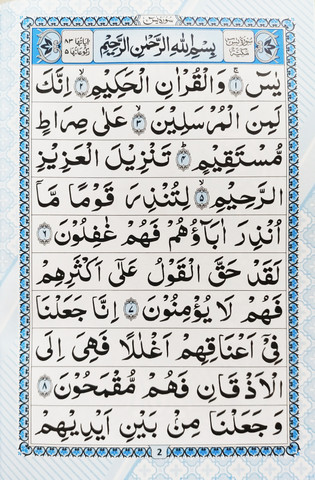 سورة يس
اٰیاتها ٨٣
رکوعاتها ٥
بِسْمِ اللّٰهِ الرَّحْمٰنِ الرَّحِیْمِ
سورة يس
مكية
یٰسٓ ۚ﴿۱﴾ وَالْقُرْاٰنِ الْحَکِیْمِ ۙ﴿۲﴾ اِنَّكَ
لَمِنَ الْمُرْسَلِیْنَ ۙ﴿۳﴾ عَلٰی صِرَاطٍ
مُّسْتَقِیْمٍ ؕ﴿۴﴾ تَنْزِیْلَ الْعَزِیْزِ
الرَّحِیْمِ ۙ﴿۵﴾ لِتُنْذِرَ قَوْمًا مَّاۤ
اُنْذِرَ اٰبَآؤُهُمْ فَهُمْ غٰفِلُوْنَ ﴿۶﴾
لَقَدْ حَقَّ الْقَوْلُ عَلٰۤی اَکْثَرِهِمْ
فَهُمْ لَا یُؤْمِنُوْنَ ﴿۷﴾ اِنَّا جَعَلْنَا
فِیْۤ اَعْنَاقِهِمْ اَغْلٰلًا فَهِیَ اِلَی
الْاَذْقَانِ فَهُمْ مُّقْمَحُوْنَ ﴿۸﴾
وَ جَعَلْنَا مِنْۢ بَیْنِ اَیْدِیْهِمْ
2